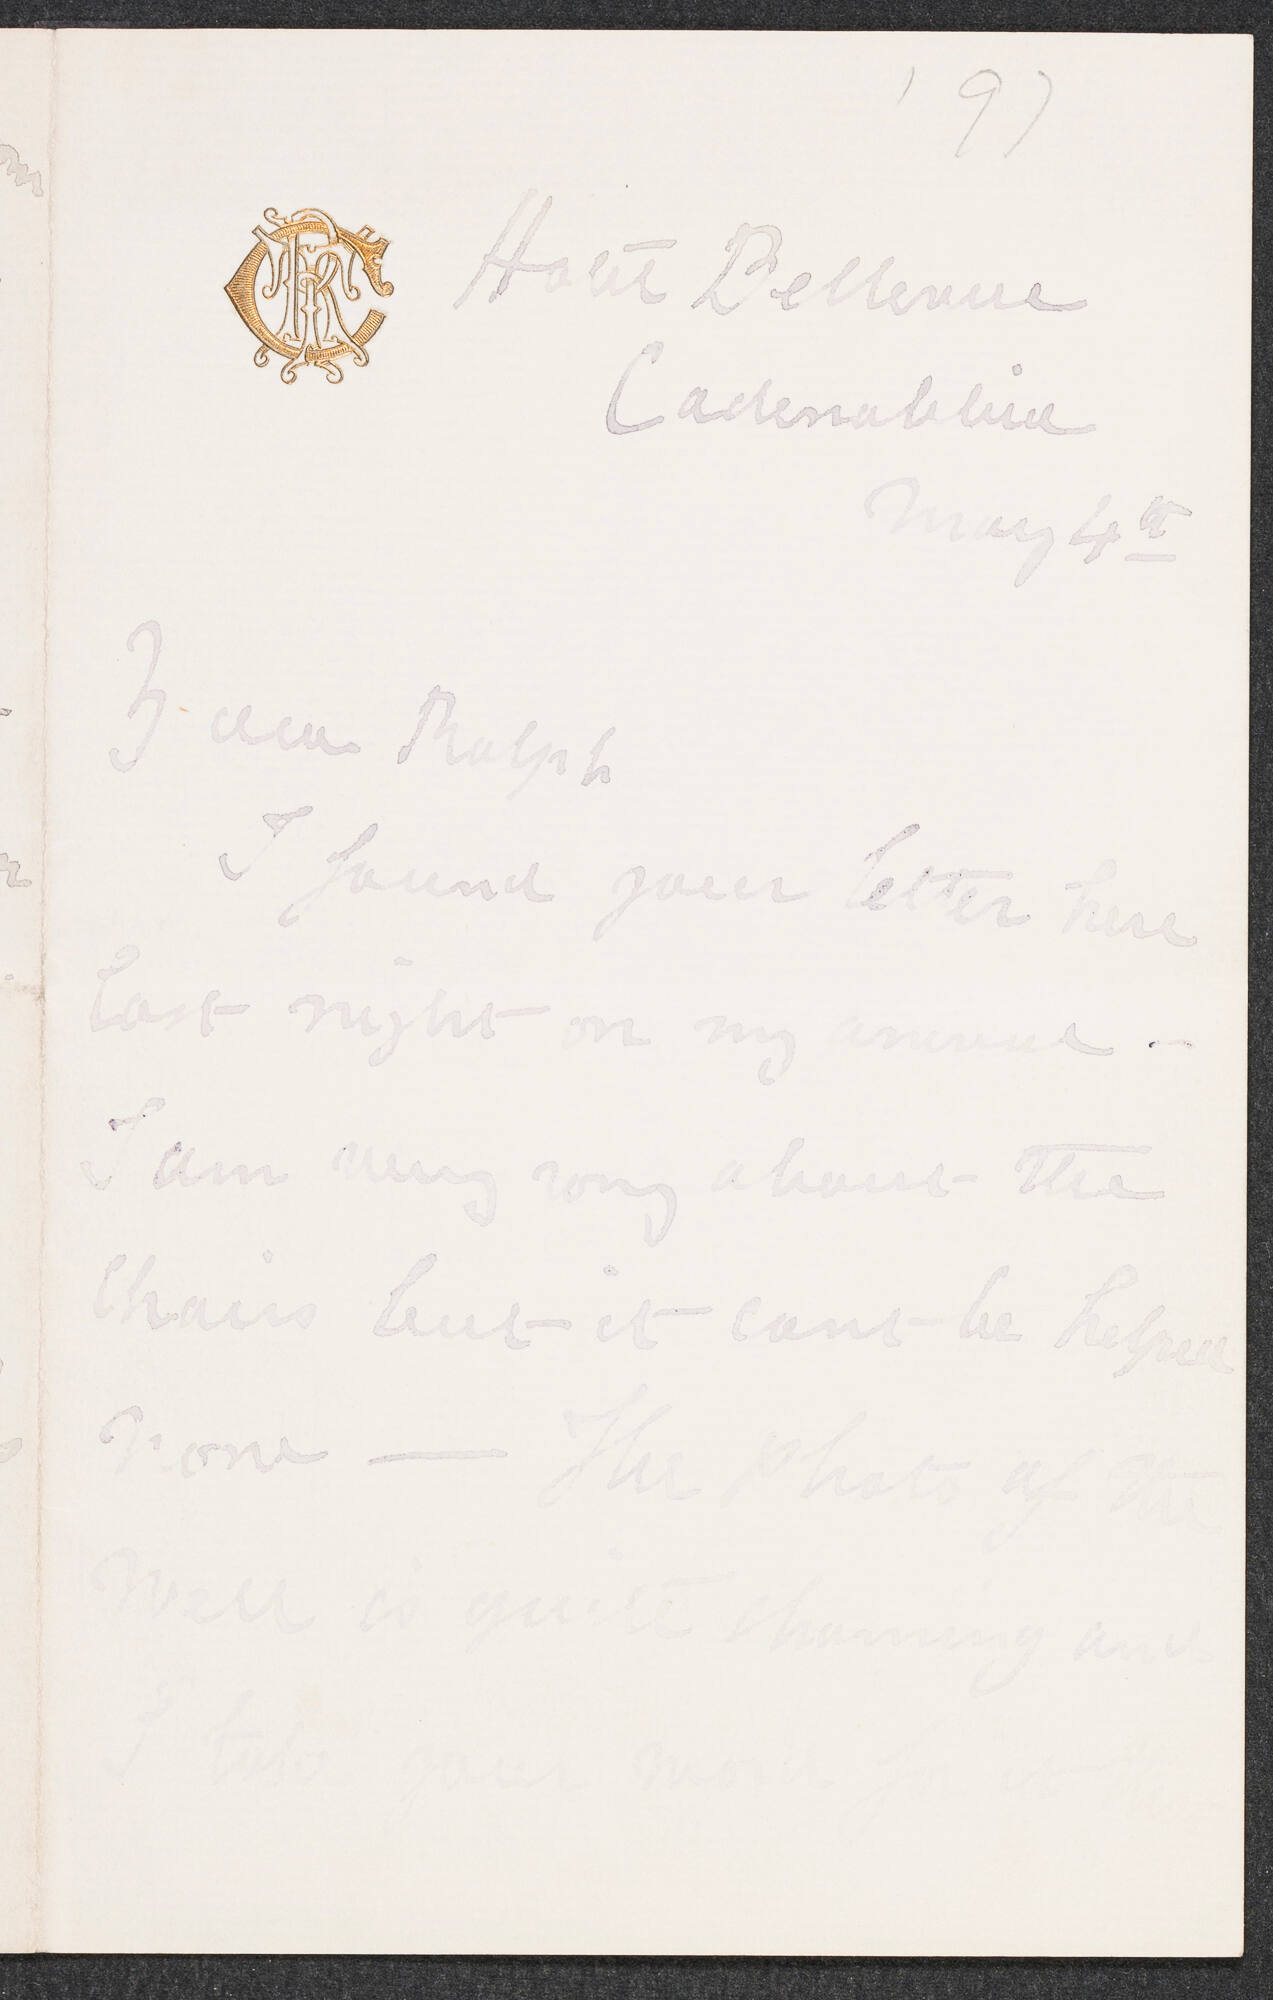 '97
Hotel Bellevue
Cadenabbia
May 4th
My dear Ralph
I found your letter here
last night on my arrival -
I am very sorry about the
Chairs but it cant be helped
now — The photo of the
Well is quite charming and
I take your word for it that